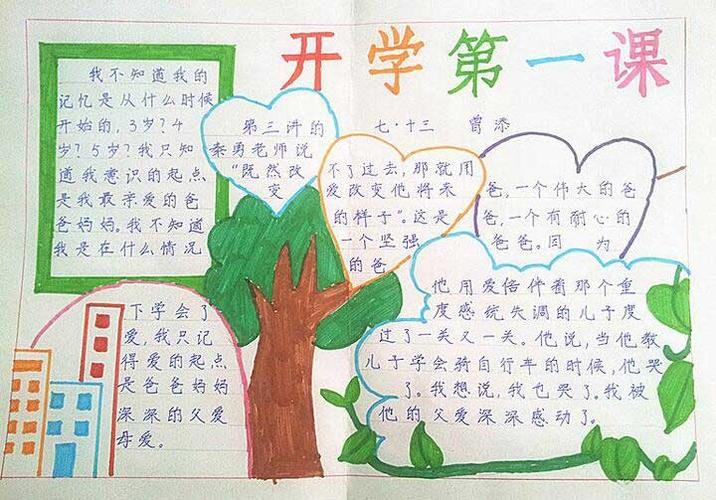 开学第一课
七·十三 曾添
我不知道我的
记忆是从什么时候
开始的，3岁？4
岁？5岁？我只知
道我意识的起点
是我最亲爱的爸
爸妈妈。我不知道
我是在什么情况
下学会了
爱，我只记
得爱的起点
是爸爸妈妈
深深的父爱
母爱。
第三讲的
秦勇老师说
“既然改
变
不了过去，那就用
爱改变他将来
的样子”。这是
一个坚强
的爸
爸，一个伟大的爸
爸，一个有耐心的
爸爸。因 为
他用爱陪伴着那个重
度感统失调的儿子度
过了一关又一关。他说，当他教
儿子学会骑自行车的时候，他哭
了。我想说，我也哭了。我被
他的父爱深深感动了。